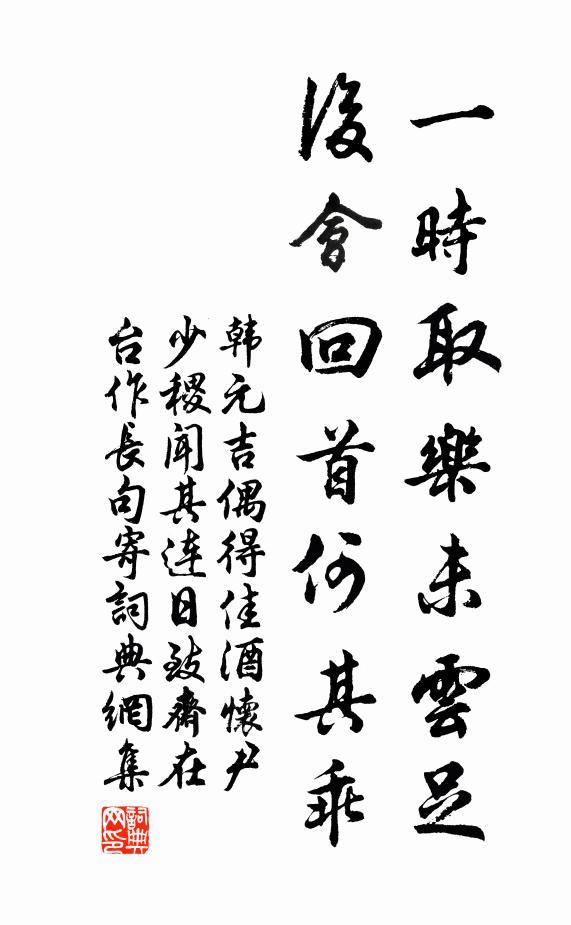 一時取樂未雲足
後會回首何其乖
韩元吉偶得佳酒懷尹
少稷闻其连日致齋在
台作長句寄詞典網集
詞典
网印